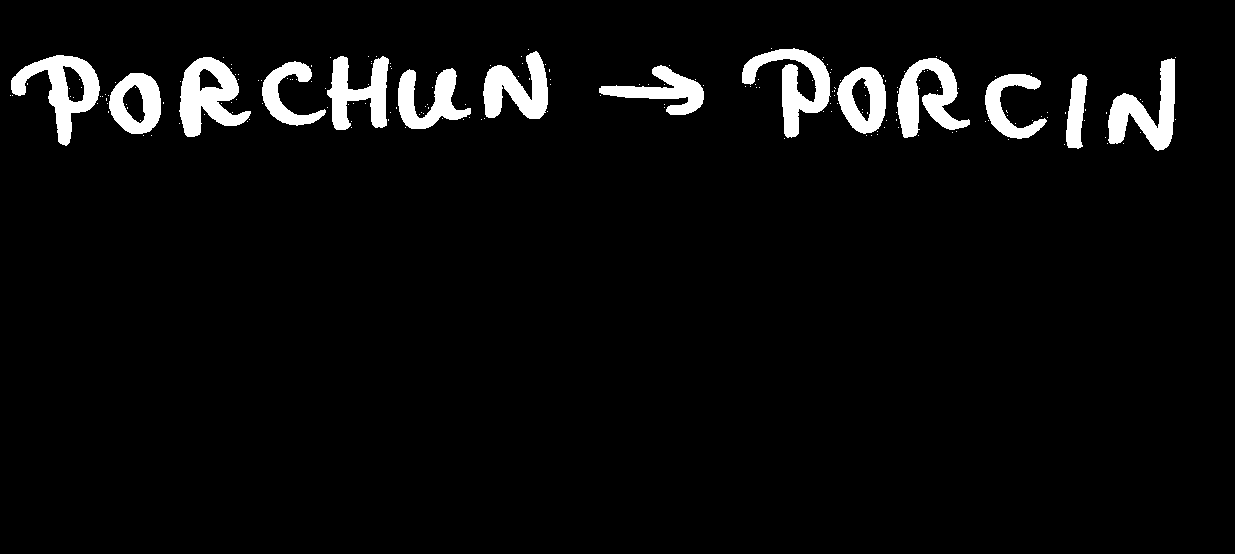 PORCHUN → PORCIN